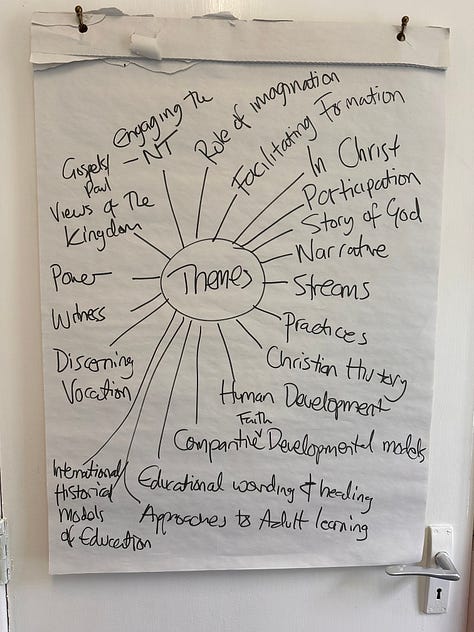 Themes
Engaging the
- NT
Role of imagination
Facilitating Formation
In Christ
Participation
Story of God
Narrative
Streams
Practices
Christian History
Human Development
Faith
Comparitive ^ Developmental models
Educational wounding & healing
Approaches to Adult learning
International/
Historical
models
of Education
Discerning
Vocation
Witness
Power
Gospels/
Paul
Views of the
Kingdom